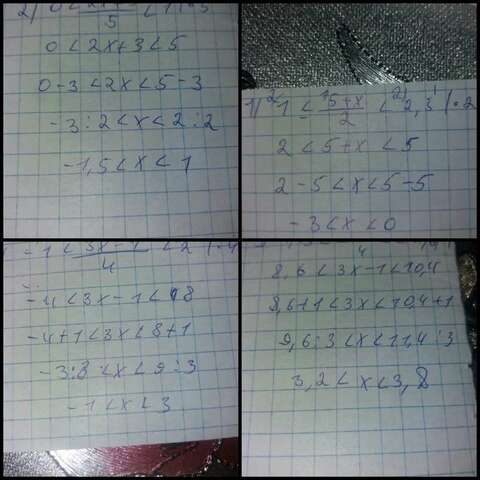 2) 0 < 2x+3/5 < 1 | · 5
0 < 2x+3 < 5
0-3 < 2x < 5-3
-3:2 < x < 2:2
-1,5 < x < 1
1) 1 < 5+x/2 < 2,5 | · 2
2 < 5+x < 5
2-5 < x < 5-5
-3 < x < 0
-1 < 3x-1/4 < 2 | · 4
-4 < 3x-1 < 8
-4+1 < 3x < 8+1
-3:3 < x < 9:3
-1 < x < 3
4
8,6 < 3x-1 < 10,4
8,6+1 < 3x < 10,4+1
9,6:3 < x < 11,4:3
3,2 < x < 3,8